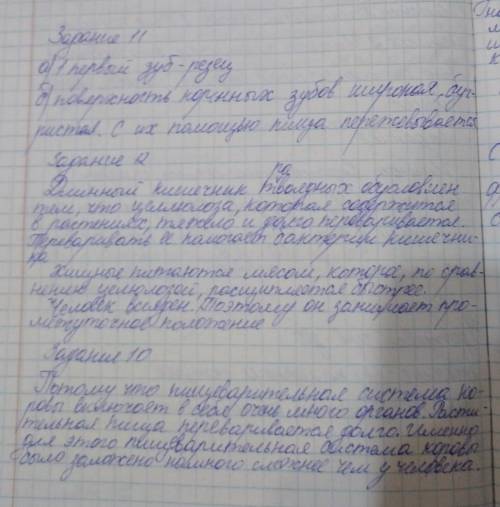 Задание 11
а) 1 первый зуб - резец
б) поверхность коренных зубов широкая, буг-
ристая. С их помощью пища пережовывается
Задание 2
ра
Длинный кишечник твоядных обусловлен
тем, что целлюлоза, которая содержится
в растениях, тяжело и долго переваривается.
Переваривать её помогает бактерии кишечни-
ка
Хищные питаются мясом, которое, по срав-
нению целюлозой, расщипляется быстрее.
Человек всеяден. Поэтому он занимает про-
межуточное положение
Задания 10
Потому что пищеварительная система ко-
ровы включает в себя очень много органов. Расти-
тельная пища переваривается долго. Именно
для этого пищеварительная система коровы
было заложено намного сложнее чем у человека.